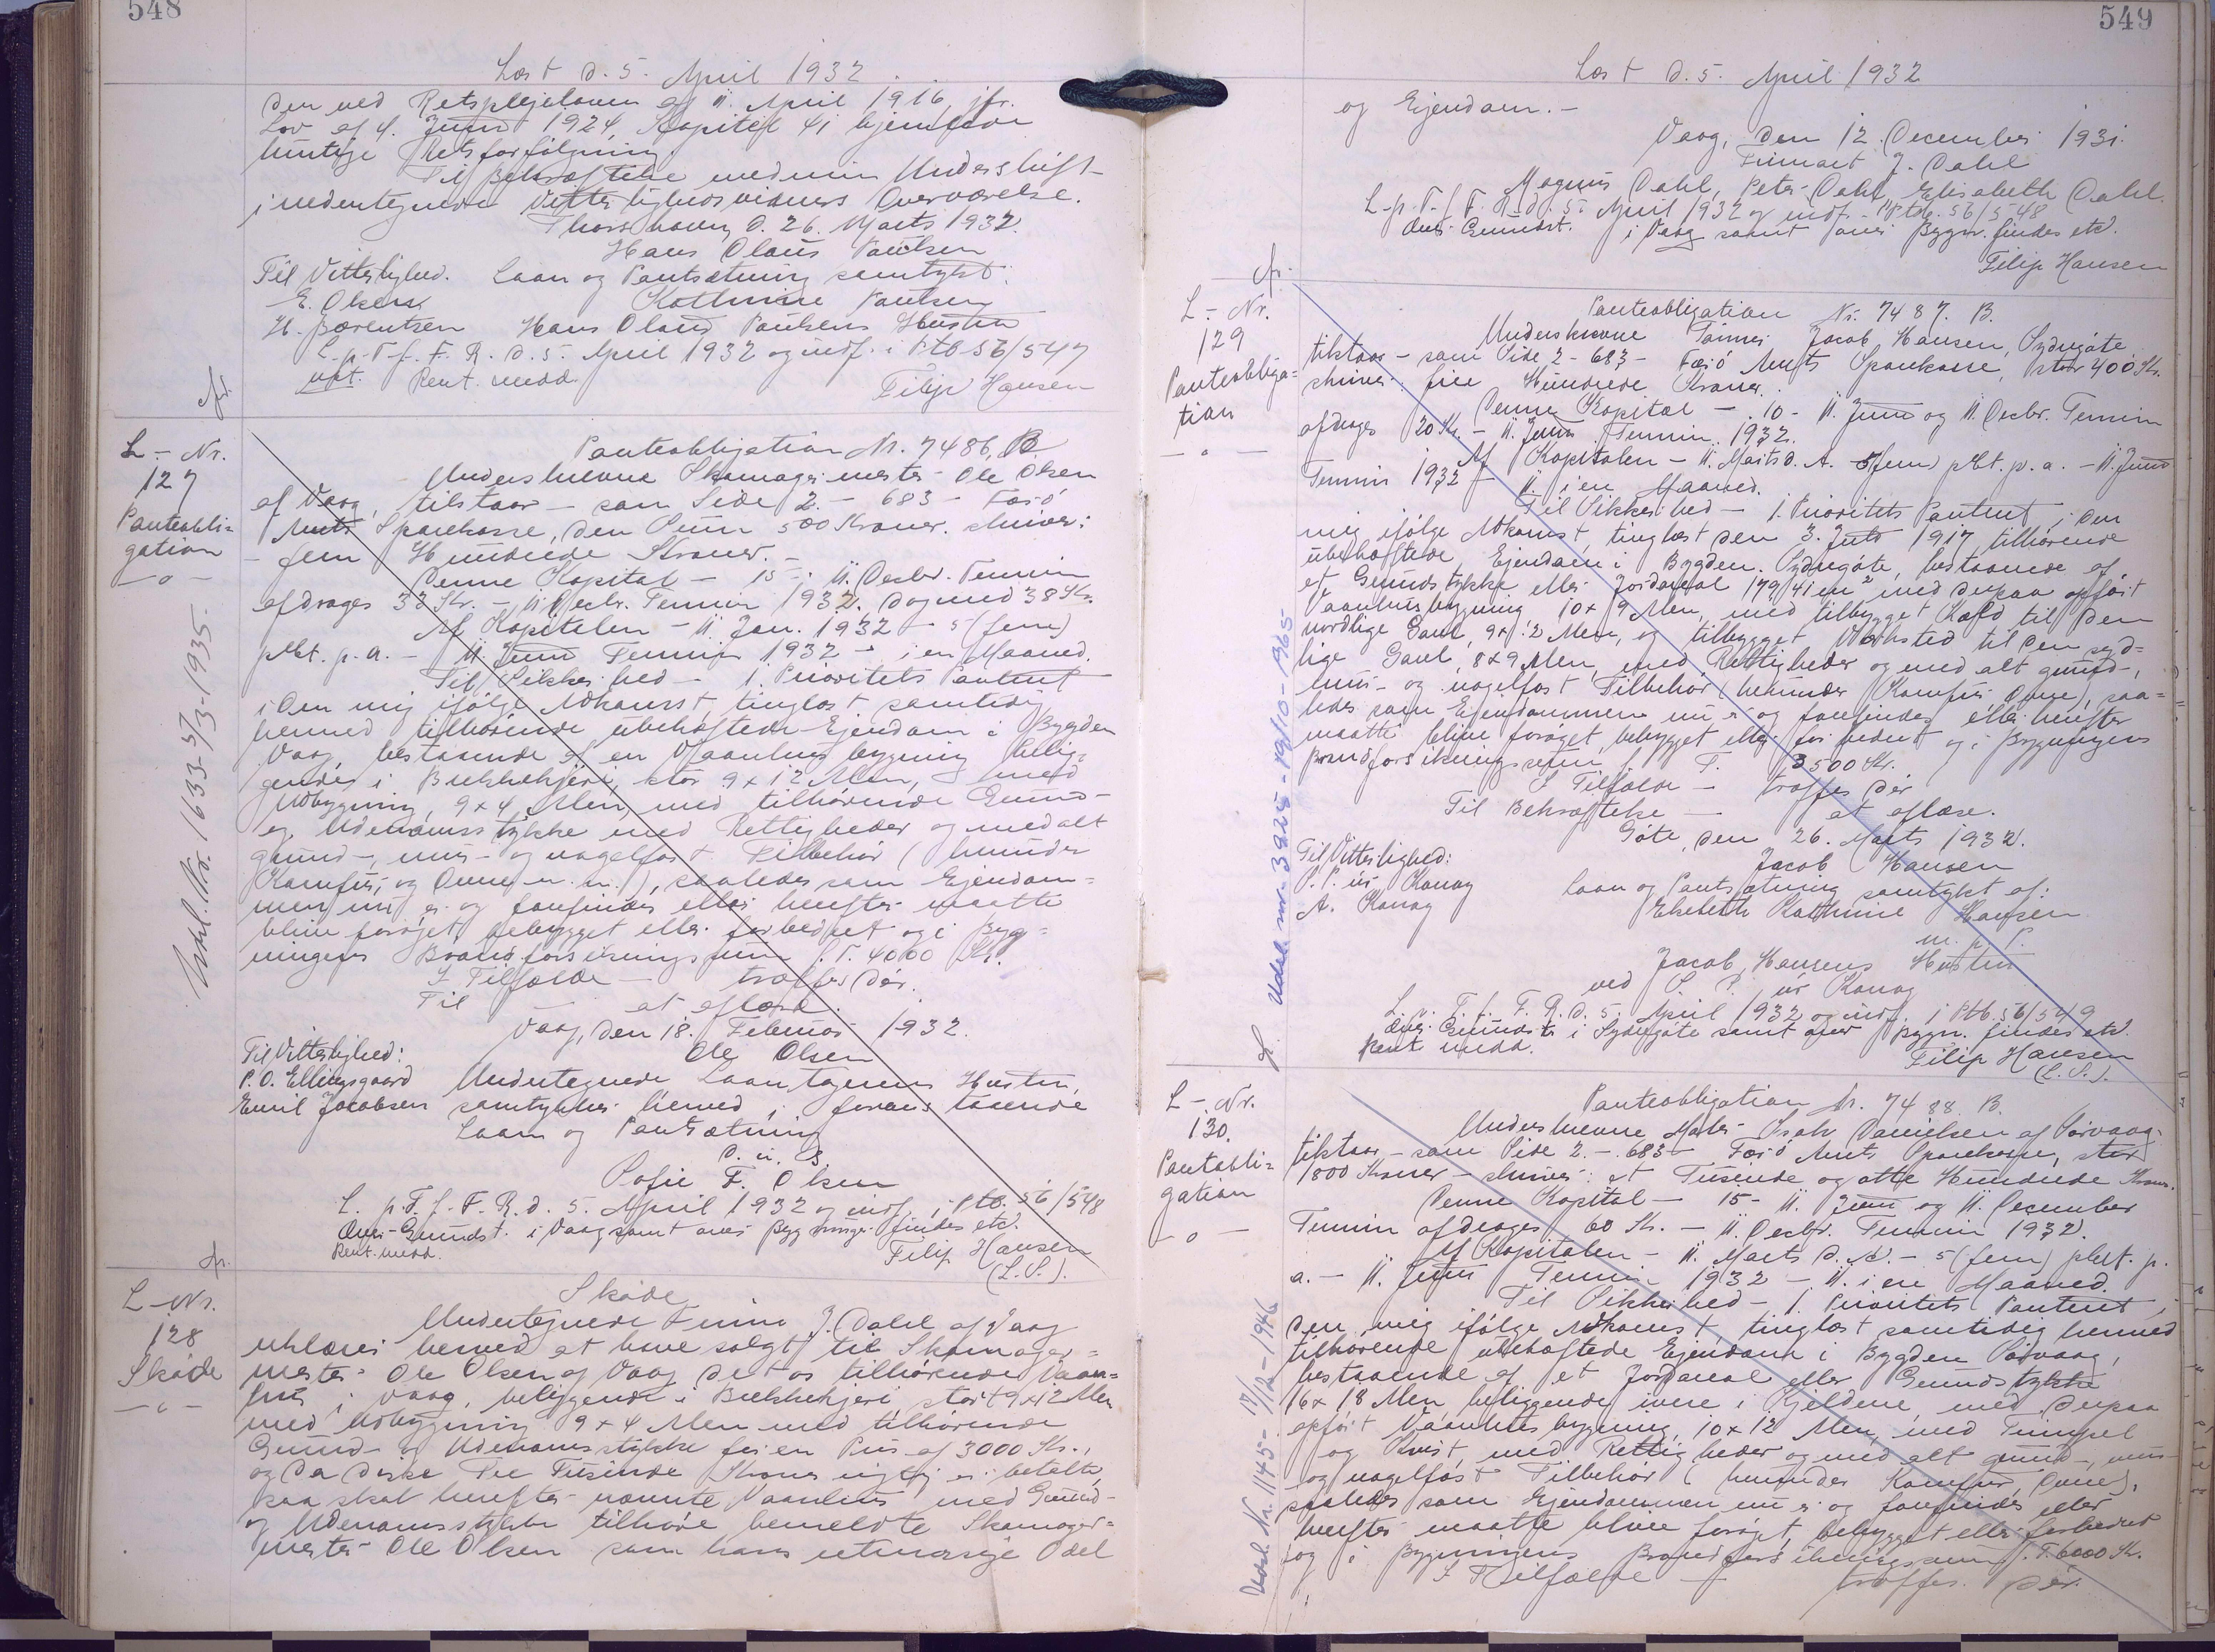 548
Læst d. 5. April 1932.
den ved Retsplejeloven af 11. April 1916, jfr.
Lov af 4. Juni 1924, Kapitel 41 hjemlede
hurtige Retsforfölgning
Til Bekræftelse med min Underskrift
i undertegnede Vitterlighedsvidners Overværelse.
Thorshavn, d. 26. Marts 1932.
Hans Olaus Poulsen
Til Vitterlighed. Laan og Pantsætning samtykt:
E. Olsen Kathrine Poulsen
H. Bærentsen Hans Olaus Poulsens Hustru
L. p. T. f. F. R. d. 5. April 1932 og indf. i Ptb 56/547
Rent. medd.
Filip Hansen
L-Nr.
127
Panteobli=
gation
-o-
Panteobligation Nr. 7486, B.
Underskrevne Skomagermester Ole Olsen
af Vaag, tilstaar - som Side 2 - 683 - Færö
Amts Sparekasse, den Sum 500 Kroner. skriver:
- fem Hundrede Kroner. -
Denne Kapital - 15 - 11. Decbr. Termin
afdrages 33 Kr. - 11 Decbr. Termin 1932. dog med 38 Kr.
Af Kapitalen - 11. Jan. 1932 - 5 (fem)
pCt. p. a. - 11. Juni Termin 1932 - i en Maaned.
Til Sikkerhed - 1. Prioritets Panteret
i den mig ifölge Adkomst, tinglæst samtidig
hermed tilhörende ubehæftede Ejendom i Bygden
Vaag, bestaaende af en Vaaningsbygning belig-
gende i Bukkekjeri, stor 9 x 12 Alen, med
Udbygning, 9 x 4 Alen, med tilhörende Grund-
og Udenomsstykke med Rettigheder og med alt
grund-, mur- og nagelfast Tilbehör (herunder
Komfur, og Ovne m. m.), saaledes som Ejendom=
men nu er og forefindes eller herefter maatte
blive foröget, bebygget eller forbedret og i Byg=
ningens Brandforsikringssum f. T. 4000 Kr.
I Tilfælde - træffes dér.
Til - at aflæse.
Vaag, den 18. Februar 1932.
Til Vitterlighed: Ole Olsen
P. O. Ellingsgaard Undertegnede Laantagerens Hustru,
Emil Jacobsen samtykker hermed i foranstaaende
Laan og Pantsætning
D. u. S.
Sofie F. Olsen
L. p. T. f. F. R. d. 5. April 1932 og indf. i Ptb. 56/548
Over Grundst. i Vaag samt over Bygninger findes etc.
Rent. medd.
Filip Hansen
(L.S.).
Udsl. Nr. 1633-5/3-1935.
L-Nr.
128
Sköde
-o-
Sköde
Undertegnede Firma J. Dahl af Vaag
erklærer herved at have solgt til Skomager=
mester Ole Olsen af Vaag det os tilhörende Vaan=
hus i Vaag, beliggende i Bukkekjeri, stort 9 x 12 Alen
med Udbygning 9 x 4 Alen med tilhörende
Grund- og Udenomsstykke for en Pris af 3000 Kr.,
og da disse Tre Tusinde Kroner rigtig er betalte,
saa skal herefter nævnte Vaanhus med Grund-
og Udenomsstykke tilhöre bemeldte Skomager=
mester Ole Olsen som hans retmæssige Odel
549
Læst d. 5. April 1932
og Ejendom. -
Vaag, den 12. December 1931.
Firmaet J. Dahl
Magnus Dahl, Peter Dahl, Elisabeth Dahl.
L. p. T. f. F. R. d. 5. April 1932 og indf. i Ptb. 56/548
Over Grundst. i Vaag samt over Bygn. findes etc.
Filip Hansen
L-Nr.
129
Panteobliga=
tion
-o-
Panteobligation Nr. 7487. B.
Underskrevne Jacob Hansen, Sydregöte
tilstaar - som Side 2 - 683 - Færö Amts Sparekasse, stor 400 Kr.
skriver: fire Hundrede Kroner.
Denne Kapital - 10 - 11. Juni og 11. Decbr. Termin
afdrages 20 Kr. - 11. Juni Termin 1932.
Af Kapitalen - 11. Marts d. A. - 5 (fem) pCt. p. a. - 11. Juni
Termin 1932 - 11. i en Maaned.
Til Sikkerhed - 1. Prioritets Panteret i den
mig ifölge Adkomst, tinglæst den 3. Juli 1917 tilhörende
ubehæftede Ejendom i Bygden Sydregöte, bestaaende af
et Grundstykke eller Jordareal 179/41 m² med derpaa opfört
Vaanhusbygning 10 x 9 Alen, med tilbygget Kove til den
nordlige Gavl, 9 x 2 Alen, og tilbygget Værksted til den syd=
lige Gavl, 8 x 9 Alen, med Rettigheder og med alt grund-,
mur- og nagelfast Tilbehör (herunder Komfur, Ovne), saa=
ledes som Ejendommen nu er og forefindes eller herefter
maatte blive foröget, bebygget eller forbedret og i Bygningens
Brandforsikringssum f. T. 3500 Kr.
I Tilfælde - træffes dér
Til Bekræftelse - at aflæse.
Göte, den 26. Marts 1932.
Til Vitterlighed: Jacob Hansen
P. P. úr Konoy Laan og Pantsætning samtykt af:
A. Konoy Elsebeth Kathrine Hansen
m. p. P.
Jacob Hansens Hustru
ved P. P. úr Konoy
L. p. T. f. F. R. d. 5. April 1932 og indf. i Ptb. 56/549
Over Grundst. i Sydregöte samt over Bygn. findes etc.
Rent medd.
Filip Hansen
(L.S.).
Udsl. nr. 3225 - 19/10-1965-
L-Nr.
130.
Panteobli=
gation
-o-
Panteobligation Nr. 7488. B.
Underskrevne Maler Danielsen af Sörvaag
tilstaar - som Side 2. - 683 - Færö Amts Sparekasse, stor
1800 Kroner - skriver: et Tusinde og otte Hundrede Kroner.
Denne Kapital - 15 - 11. Juni og 11. December
Termin afdrages 60 Kr. - 11. Decbr. Termin 1932.
Af Kapitalen - 11. Marts d. A. - 5 (fem) pCt. p.
a. - 11. Juni Termin 1932 - 11. i en Maaned.
Til Sikkerhed - 1. Prioritets Panteret i
den mig ifölge Adkomst, tinglæst samtidig hermed
tilhörende ubehæftede Ejendom i Bygden Sörvaag,
bestaaende af et Jordareal eller Grundstykke
16 x 18 Alen beliggende inere i Gjeldene, med derpaa
opfört Vaanhusbygning, 10 x 12 Alen, med Fimpel
og Kvist, med Rettigheder og med alt grund-, mur-
og nagelfast Tilbehör (herunder Komfur, Ovne),
saaledes som Ejendommen nu er og forefindes eller
herefter maatte blive foröget, bebygget eller forbedret
og i Bygningens Brandforsikringssum f. T. 6000 Kr.
I Tilfælde - træffes dér.
Udsl. Nr. 1145- 17/12-1946